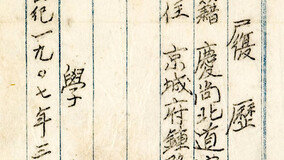 履歷
籍 慶尚北道
住 京城府鍾
學
紀一九〇七年三